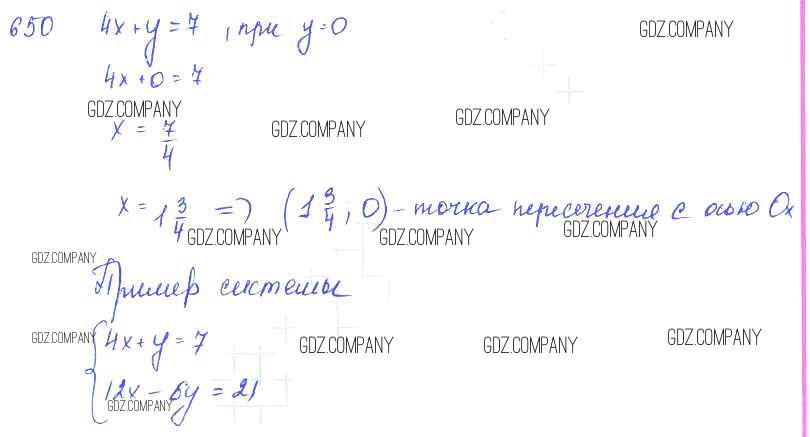 650 4x+y=7, при y=0 GDZ.COMPANY
4x+0=7
GDZ.COMPANY GDZ.COMPANY GDZ.COMPANY
x = 7/4
x = 1 3/4 => (1 3/4; 0) - точка пересечения с осью Ox
GDZ.COMPANY GDZ.COMPANY GDZ.COMPANY
GDZ.COMPANY
Пример системы
GDZ.COMPANY { 4x+y=7 GDZ.COMPANY GDZ.COMPANY GDZ.COMPANY
12x-5y=21
GDZ.COMPANY